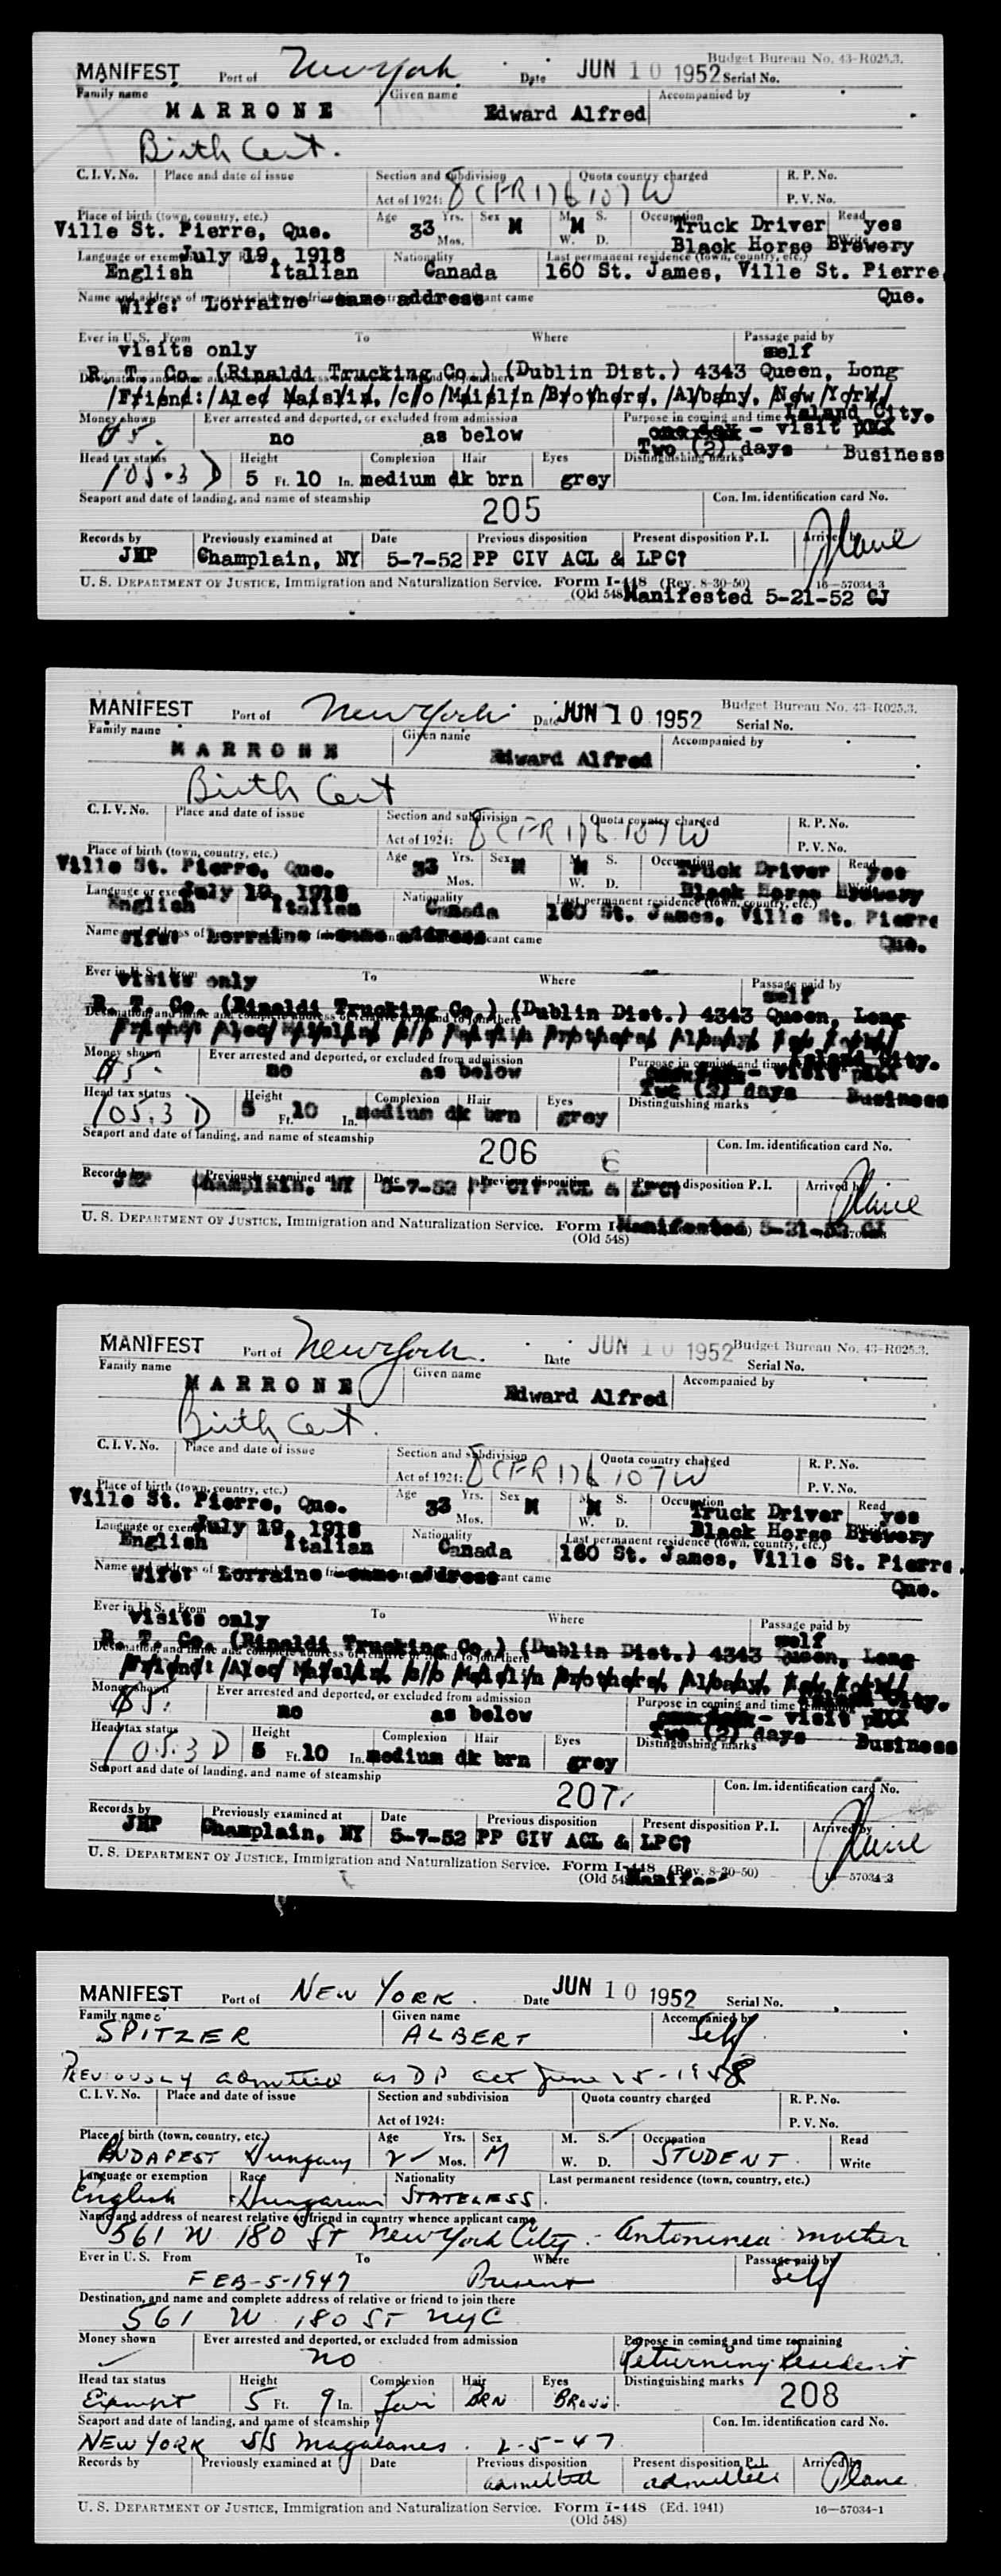 Budget Bureau No. 43-R025.3.
MANIFEST Port of New York Date JUN 10 1952 Serial No.
Family name Given name Accompanied by
MARRONE Edward Alfred
Birth Cert.
C. I. V. No. Place and date of issue Section and subdivision Quota country charged R. P. No.
Act of 1924: 8 CFR 176 107 W P. V. No.
Place of birth (town, country, etc.) Age Yrs. Sex M. S. Occupation Read
Ville St. Pierre, Que. 33 Mos. M M W. D. Truck Driver yes
July 19, 1918 Black Horse Brewery
Language or exemption Nationality Last permanent residence (town, country, etc.)
English Italian Canada 160 St. James, Ville St. Pierre,
Que.
Wife: Lorraine same address
Ever in U.S. From To Where Passage paid by
visits only self
R. T. Co. (Rinaldi Trucking Co.) (Dublin Dist.) 4343 Queen, Long
Friend: Alec Maislin, c/o Maislin Brothers, Albany, New York
Island City.
Money shown Ever arrested and deported, or excluded from admission Purpose in coming and time
$5. no as below one day - visit
Two (2) days Business
Head tax status Height Complexion Hair Eyes Distinguishing marks
105.3 D 5 Ft. 10 In. medium dk brn grey
Seaport and date of landing, and name of steamship Con. Im. identification card No.
205
Records by Previously examined at Date Previous disposition Present disposition P. I. Arrived by
JHP Champlain, NY 5-7-52 PP CIV ACL & LPC?
U. S. DEPARTMENT OF JUSTICE, Immigration and Naturalization Service. Form I-448 (Rev. 8-30-50) 16—57034-3
(Old 548) Manifested 5-21-52 CJ
Budget Bureau No. 43-R025.3.
MANIFEST Port of New York Date JUN 10 1952 Serial No.
Family name Given name Accompanied by
MARRONE Edward Alfred
Birth Cert
C. I. V. No. Place and date of issue Section and subdivision Quota country charged R. P. No.
Act of 1924: 8 CFR 176 107 W P. V. No.
Place of birth (town, country, etc.) Age Yrs. Sex M. S. Occupation Read
Ville St. Pierre, Que. 33 Mos. M M W. D. Truck Driver yes
July 19, 1918 Black Horse Brewery
Language or Nationality Last permanent residence (town, country, etc.)
English Italian Canada 160 St. James, Ville St. Pierre
Que.
Wife: Lorraine same address
Ever in U.S. From To Where Passage paid by
visits only self
R. T. Co. (Rinaldi Trucking Co.) (Dublin Dist.) 4343 Queen, Long
Friend: Alec Maislin c/o Maislin Brothers, Albany, New York
Island City.
Money shown Ever arrested and deported, or excluded from admission Purpose in coming and time
$5. no as below - visit
Two (2) days Business
Head tax status Height Complexion Hair Eyes Distinguishing marks
105.3 D 5 Ft. 10 In. medium dk brn grey
Seaport and date of landing, and name of steamship Con. Im. identification card No.
206 6
Records by Previously examined at Date Previous disposition Present disposition P. I. Arrived by
JHP Champlain, NY 5-7-52 PP CIV ACL & LPC?
U. S. DEPARTMENT OF JUSTICE, Immigration and Naturalization Service. Form I Manifested 5-21-52 CJ
(Old 548)
Budget Bureau No. 43-R025.3.
MANIFEST Port of New York Date JUN 10 1952 Serial No.
Family name Given name Accompanied by
MARRONE Edward Alfred
Birth Cert.
C. I. V. No. Place and date of issue Section and subdivision Quota country charged R. P. No.
Act of 1924: 8 CFR 176 107 W P. V. No.
Place of birth (town, country, etc.) Age Yrs. Sex M. S. Occupation Read
Ville St. Pierre, Que. 33 Mos. M M W. D. Truck Driver yes
July 19, 1918 Black Horse Brewery
Language or exemption Nationality Last permanent residence (town, country, etc.)
English Italian Canada 160 St. James, Ville St. Pierre,
Que.
Wife: Lorraine same address
Ever in U.S. From To Where Passage paid by
visits only self
R. T. Co. (Rinaldi Trucking Co.) (Dublin Dist.) 4343 Queen, Long
Friend: Alec Maislin c/o Maislin Brothers, Albany, New York
Island City.
Money shown Ever arrested and deported, or excluded from admission Purpose in coming and time
$5. no as below - visit
Two (2) days Business
Head tax status Height Complexion Hair Eyes Distinguishing marks
105.3 D 5 Ft. 10 In. medium dk brn grey
Seaport and date of landing, and name of steamship Con. Im. identification card No.
207
Records by Previously examined at Date Previous disposition Present disposition P. I. Arrived by
JHP Champlain, NY 5-7-52 PP CIV ACL & LPC?
U. S. DEPARTMENT OF JUSTICE, Immigration and Naturalization Service. Form I-448 (Rev. 8-30-50) 16—57034-3
(Old 548)
MANIFEST Port of NEW YORK. Date JUN 10 1952 Serial No.
Family name Given name Accompanied by
SPITZER ALBERT Self
PREVIOUSLY admitted as DP act June 25-1948
C. I. V. No. Place and date of issue Section and subdivision Quota country charged R. P. No.
Act of 1924: P. V. No.
Place of birth (town, country, etc.) Age Yrs. Sex M. S. Occupation Read
BUDAPEST Hungary Mos. M W. D. STUDENT Write
Language or exemption Race Nationality Last permanent residence (town, country, etc.)
English Hungarian STATELESS
Name and address of nearest relative or friend in country whence applicant came
561 W 180 ST New York City - Antoninea mother
Ever in U.S. From To Where Passage paid by
FEB-5-1947 Present Self
Destination, and name and complete address of relative or friend to join there
561 W. 180 ST NYC
Money shown Ever arrested and deported, or excluded from admission Purpose in coming and time remaining
no Returning Resident
Head tax status Height Complexion Hair Eyes Distinguishing marks
Exempt 5 Ft. 9 In. fair BRN BROWN 208
Seaport and date of landing, and name of steamship Con. Im. identification card No.
NEW YORK S/S Magallanes. 2-5-47
Records by Previously examined at Date Previous disposition Present disposition P. I. Arrived by
admitted admitted
U. S. DEPARTMENT OF JUSTICE, Immigration and Naturalization Service. Form I-448 (Ed. 1941) 16—57034-1
(Old 548)